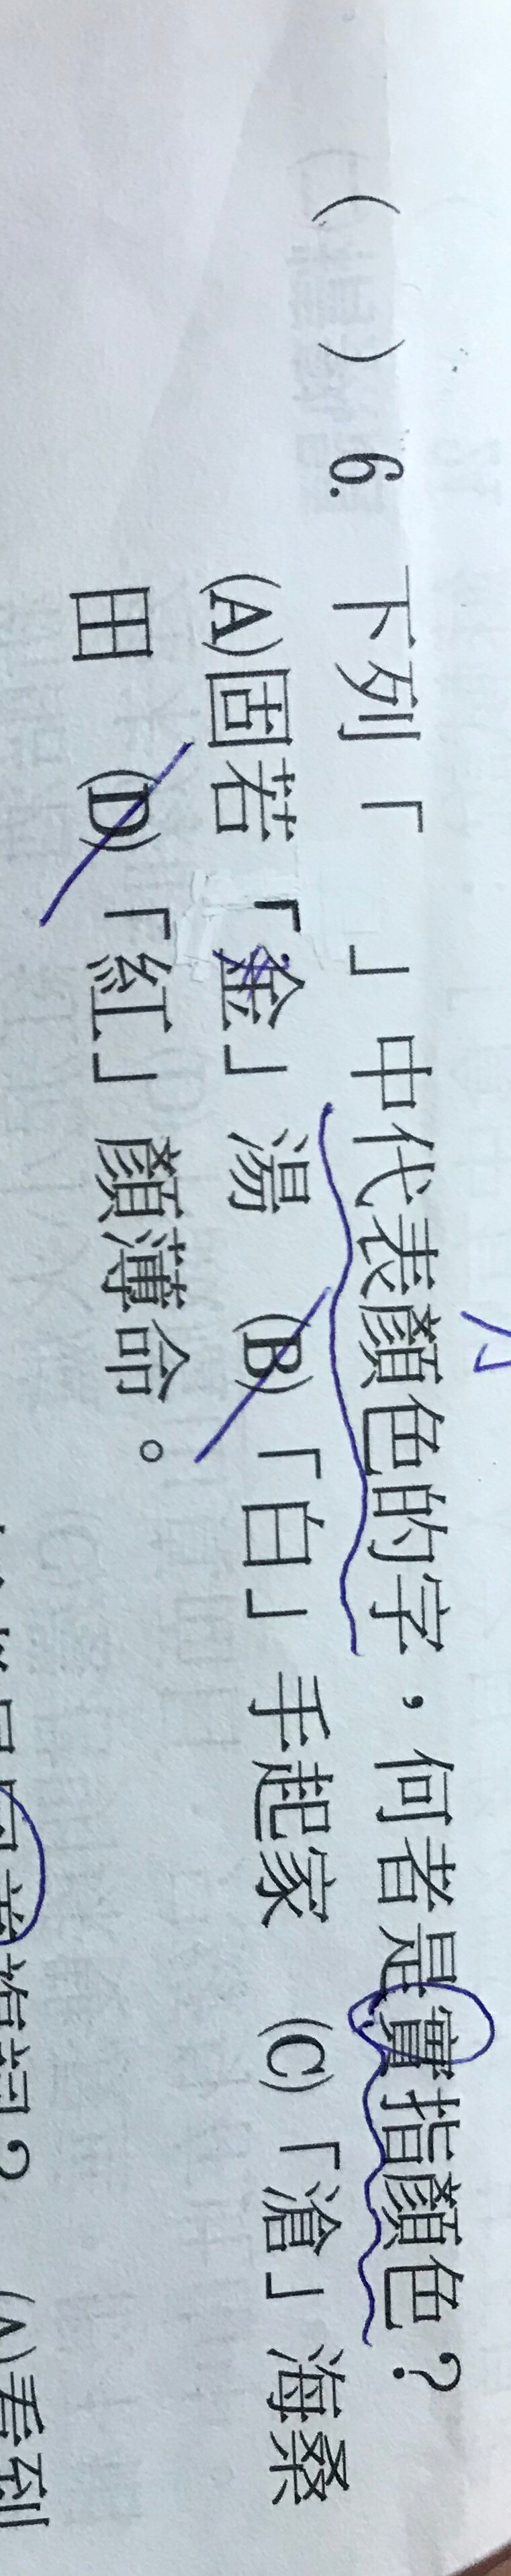 ( ) 6. 下列「 」中代表顏色的字，何者是實指顏色？
(A)固若「金」湯 (B)「白」手起家 (C)「滄」海桑
田 (D)「紅」顏薄命。
(A)看到